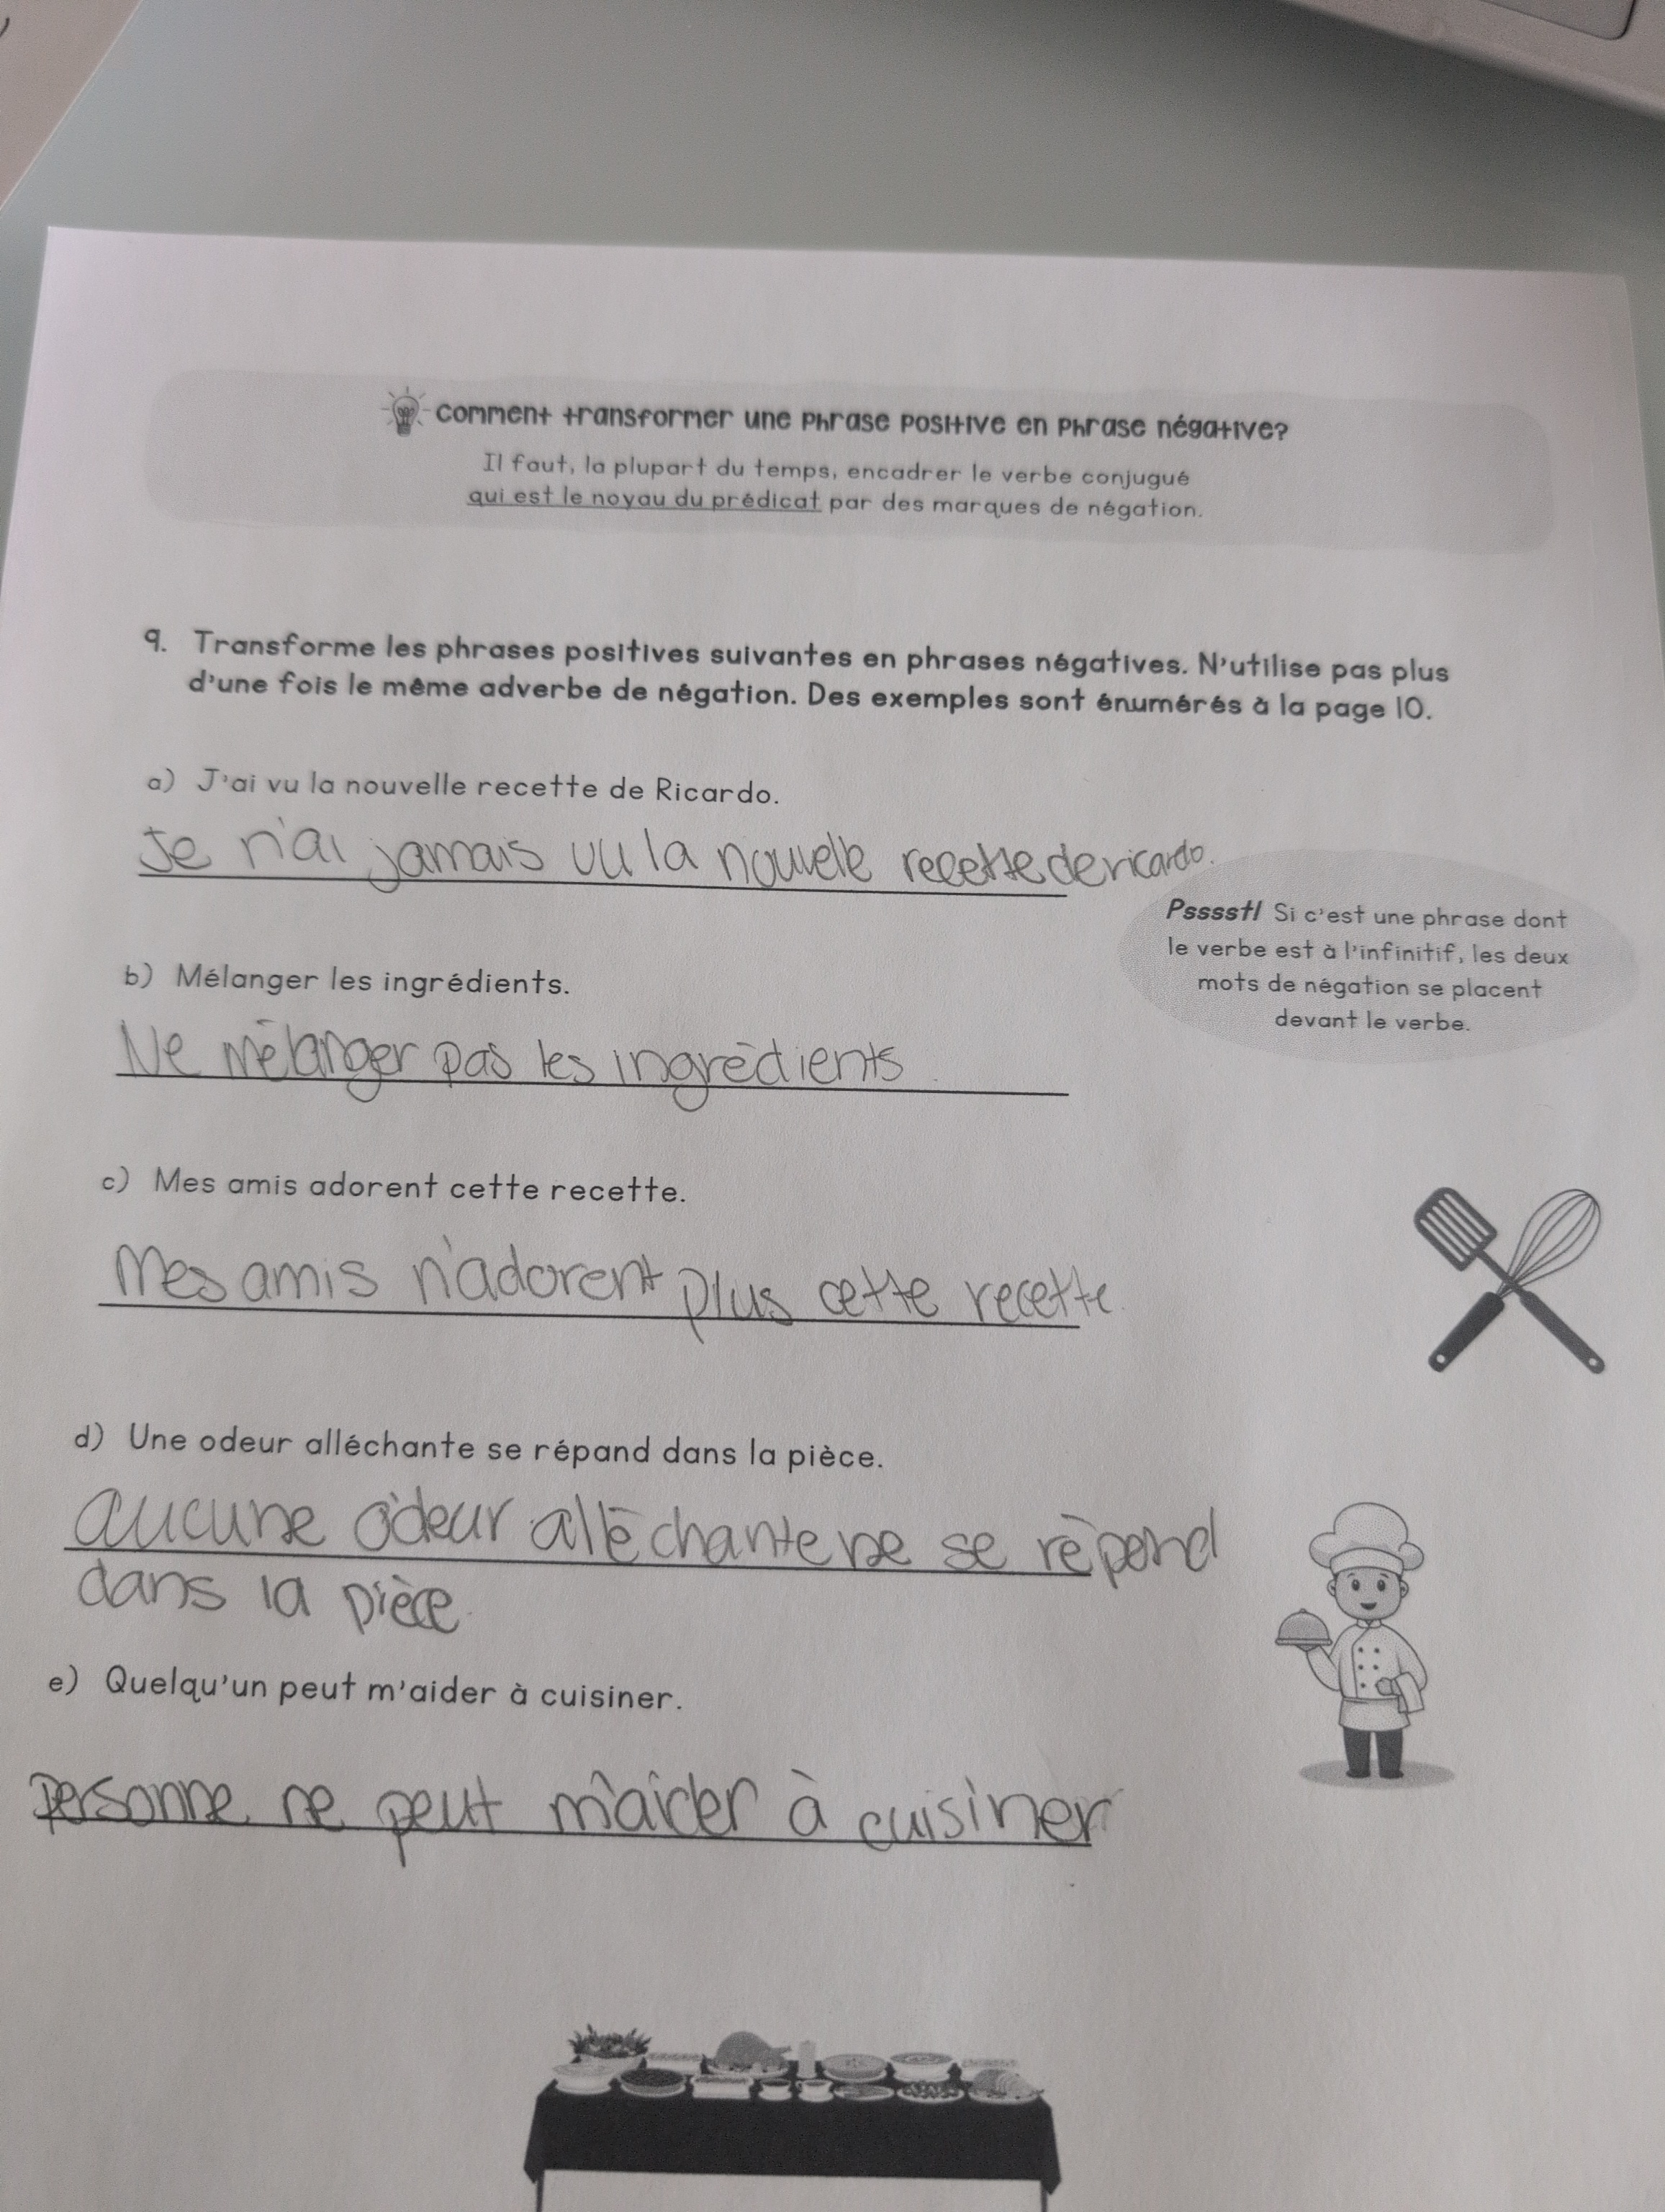 Comment transformer une phrase positive en phrase négative?
Il faut, la plupart du temps, encadrer le verbe conjugué
qui est le noyau du prédicat par des marques de négation.
9. Transforme les phrases positives suivantes en phrases négatives. N'utilise pas plus
d'une fois le même adverbe de négation. Des exemples sont énumérés à la page 10.
a) J'ai vu la nouvelle recette de Ricardo.
Je n'ai jamais vu la nouvelle recette de ricardo.
Psssst! Si c'est une phrase dont
le verbe est à l'infinitif, les deux
mots de négation se placent
devant le verbe.
b) Mélanger les ingrédients.
Ne mélanger pas les ingrédients.
c) Mes amis adorent cette recette.
Mes amis n'adorent plus cette recette.
d) Une odeur alléchante se répand dans la pièce.
aucune odeur alléchante ne se répend
dans la pièce.
e) Quelqu'un peut m'aider à cuisiner.
Personne ne peut m'aider à cuisiner